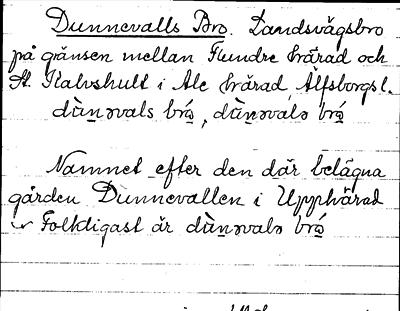 Dunnevalls Bro. Landsvägsbro
på gränsen mellan Flundre härad och
St. Kalvshult i Ale härad, Älfsborgs l.
dùn̲əvals bró̲, dùn̲əvalə bró̲
Namnet efter den där belägna
gården Dunnevallen i Upphärad
Folkligast är dùn̲əvalə bró̲